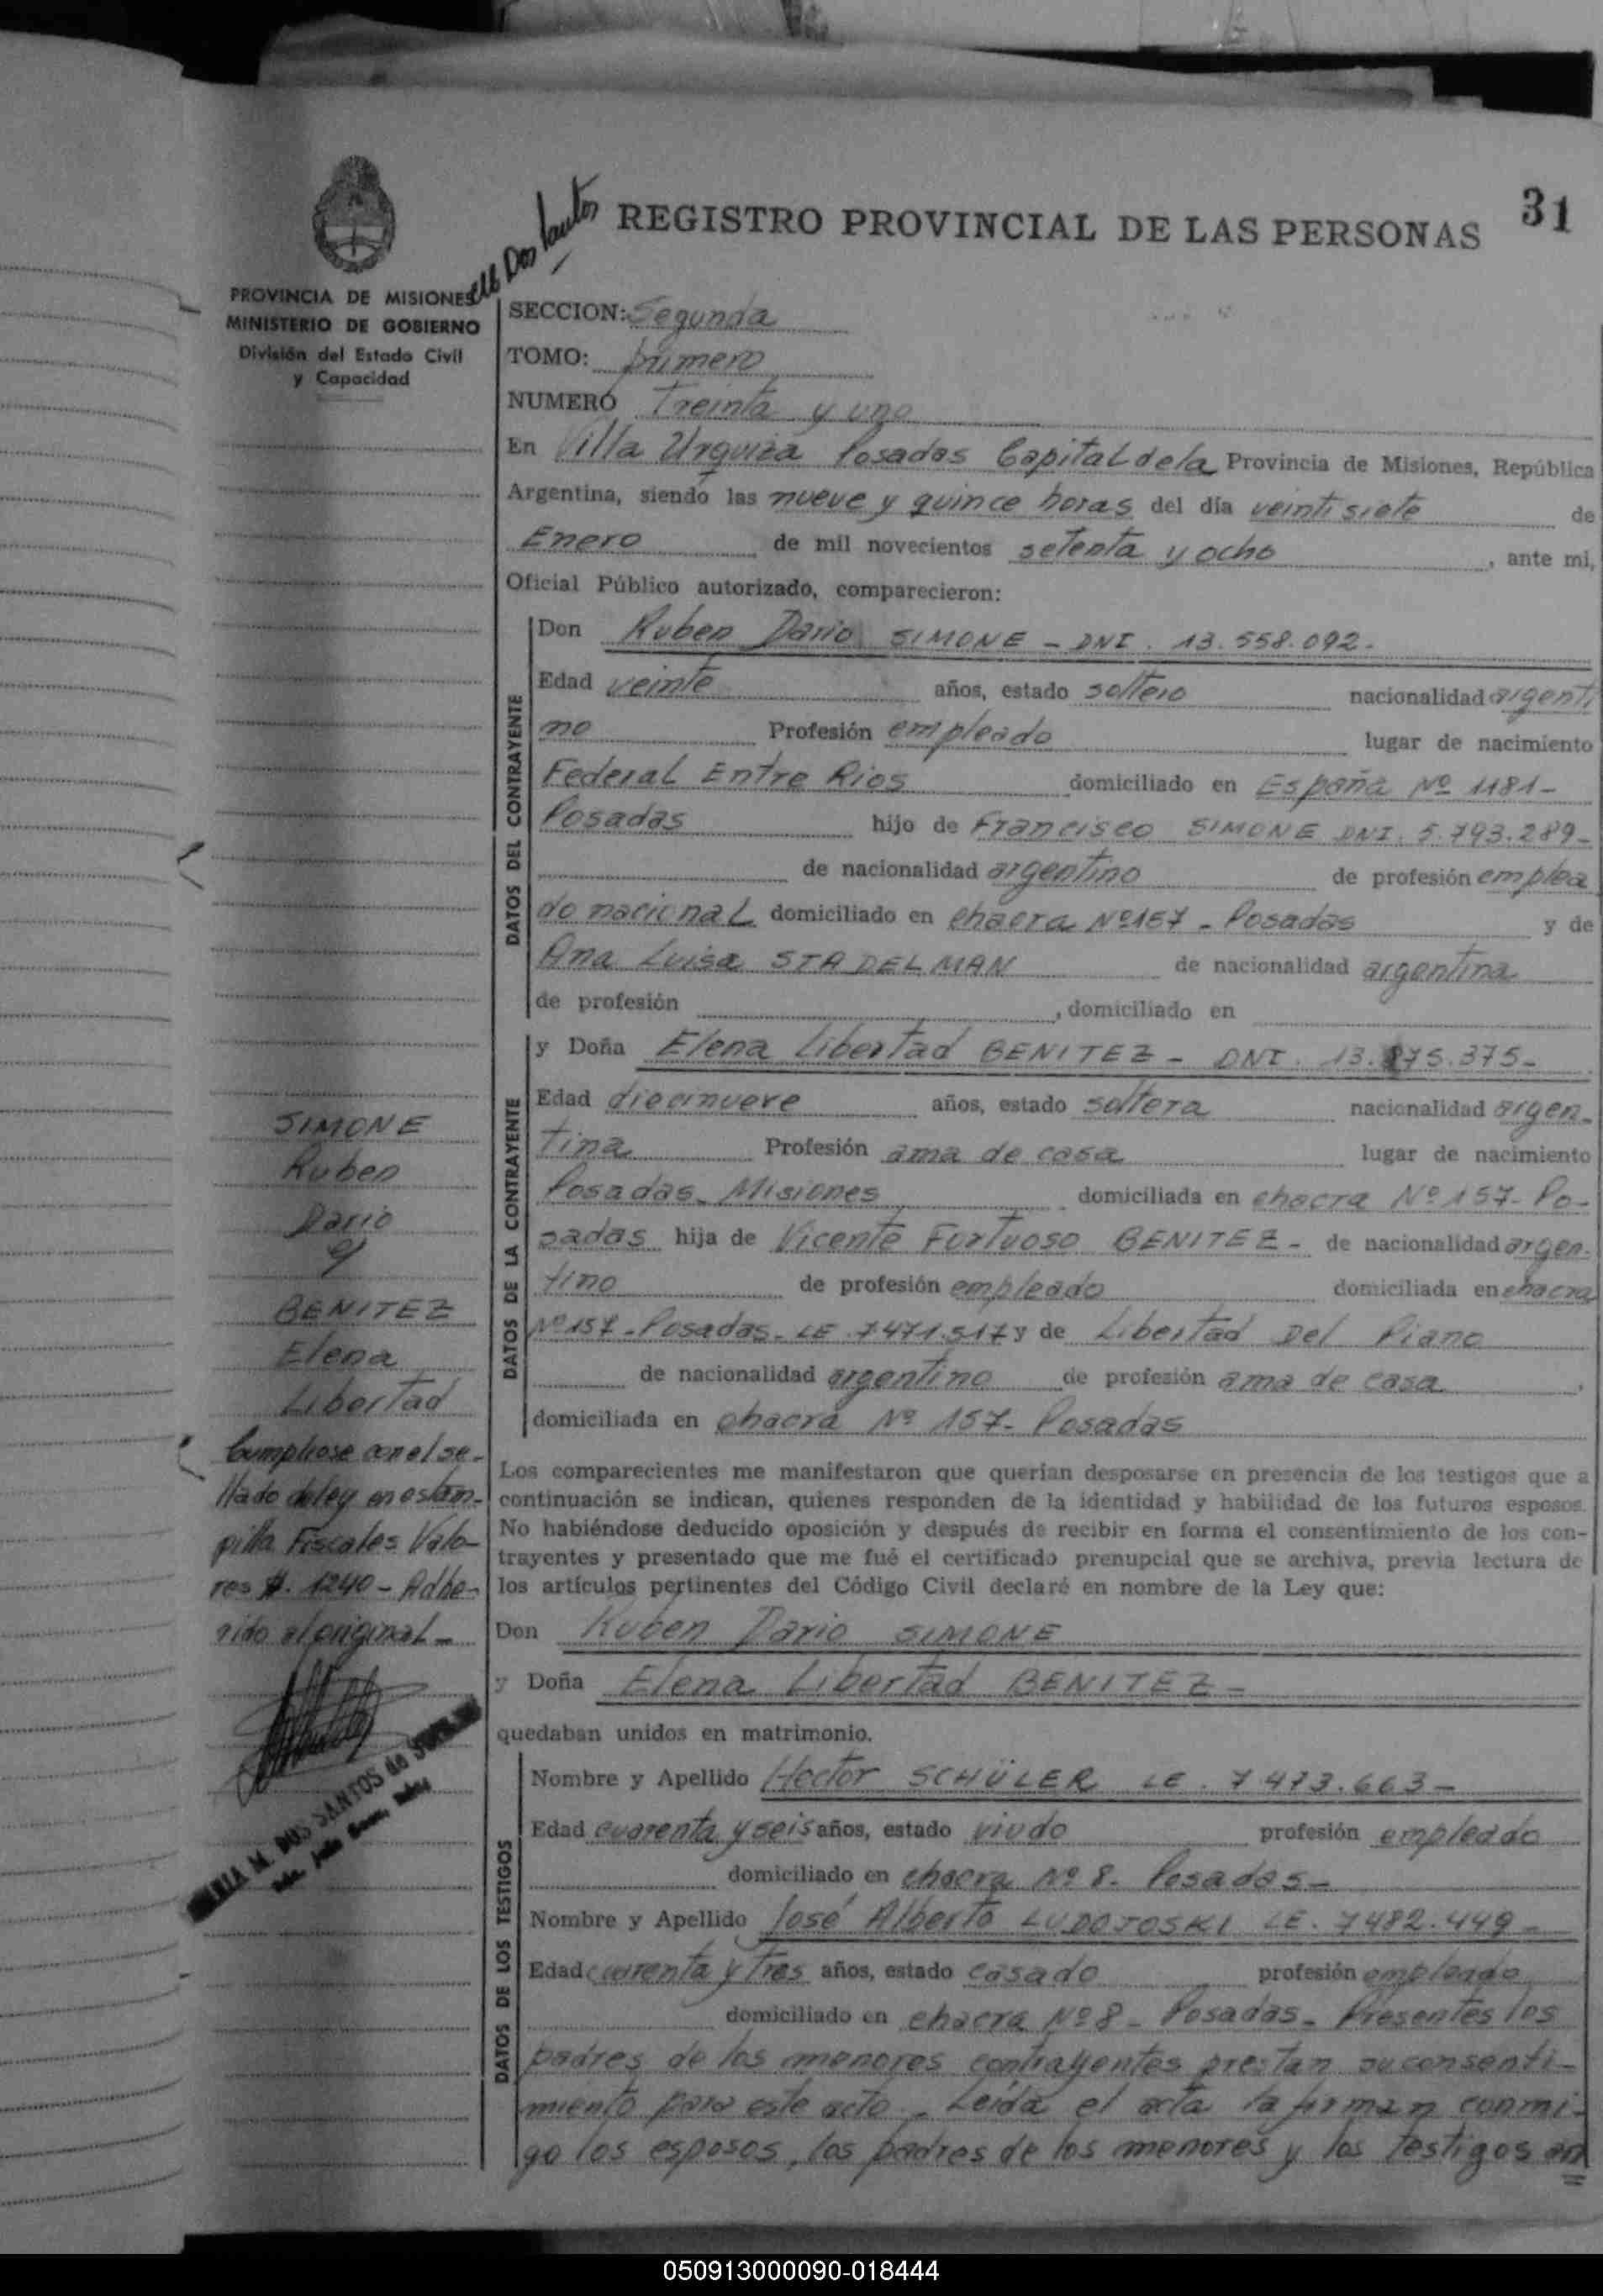 REGISTRO PROVINCIAL DE LAS PERSONAS
31
Dos Santos
PROVINCIA DE MISIONES
MINISTERIO DE GOBIERNO
División del Estado Civil
y Capacidad
SECCION: Segunda
TOMO: primero
NUMERO Treinta y uno
En Villa Urquiza Posadas Capital de la Provincia de Misiones, República
Argentina, siendo las nueve y quince horas del día veintisiete de
Enero de mil novecientos setenta y ocho, ante mi,
Oficial Público autorizado, comparecieron:
DATOS DEL CONTRAYENTE
Don Ruben Dario SIMONE - DNI. 13.558.092-
Edad veinte años, estado soltero nacionalidad argenti
no Profesión empleado lugar de nacimiento
Federal Entre Rios domiciliado en España Nº 1181-
Posadas hijo de Francisco SIMONE DNI. 5.793.289-
de nacionalidad argentino de profesión emplea
do nacional domiciliado en chacra Nº157 - Posadas y de
Ana Luisa STADELMAN de nacionalidad argentina
de profesión , domiciliado en
DATOS DE LA CONTRAYENTE
y Doña Elena Libertad BENITEZ - DNI. 13.875.375-
Edad diecinueve años, estado soltera nacionalidad argen-
tina Profesión ama de casa lugar de nacimiento
Posadas-Misiones domiciliada en chacra Nº157-Po-
sadas hija de Vicente Furtuoso BENITEZ- de nacionalidad argen-
tino de profesión empleado domiciliada en chacra
Nº157-Posadas-LE.7471.517 y de Libertad Del Piano
de nacionalidad argentino de profesión ama de casa,
domiciliada en chacra Nº 157- Posadas
SIMONE
Ruben
Dario
y
BENITEZ
Elena
Libertad
Cumpliose con el se-
llado de ley en estam-
pilla Fiscales Valo-
res $. 1240- Adhe-
rido al original-
M. DOS SANTOS de
Los comparecientes me manifestaron que querían desposarse en presencia de los testigos que a
continuación se indican, quienes responden de la identidad y habilidad de los futuros esposos.
No habiéndose deducido oposición y después de recibir en forma el consentimiento de los con-
trayentes y presentado que me fué el certificado prenupcial que se archiva, previa lectura de
los artículos pertinentes del Código Civil declaré en nombre de la Ley que:
Don Ruben Dario SIMONE
y Doña Elena Libertad BENITEZ-
quedaban unidos en matrimonio.
DATOS DE LOS TESTIGOS
Nombre y Apellido Hector SCHÜLER LE. 7473.663-
Edad cuarenta y seis años, estado viudo profesión empleado
domiciliado en chacra Nº 8- Posadas-
Nombre y Apellido José Alberto LUDOJOSKI LE. 7482.449-
Edad cuarenta y Tres años, estado casado profesión empleado
domiciliado en chacra Nº8- Posadas- Presentes los
padres de los menores contrayentes prestan su consenti-
miento para este acto.- Leída el acta la firman conmi-
go los esposos, los padres de los menores y los testigos an
050913000090-018444